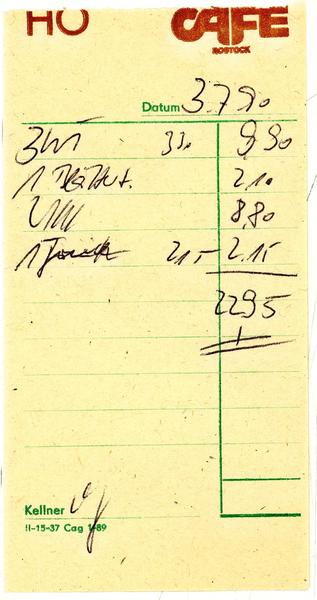 HO CAFE
ROSTOCK
Datum 3.7.90
3 33o 9,90
1 2.10
8,80
1 215 2.15
2295
Kellner
II-15-37 Cag 1-89